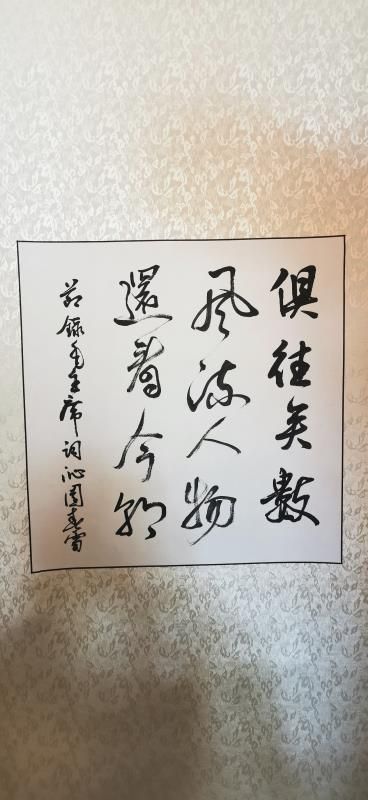 俱往矣数
风流人物
還看今朝
节錄毛主席词沁园春雪